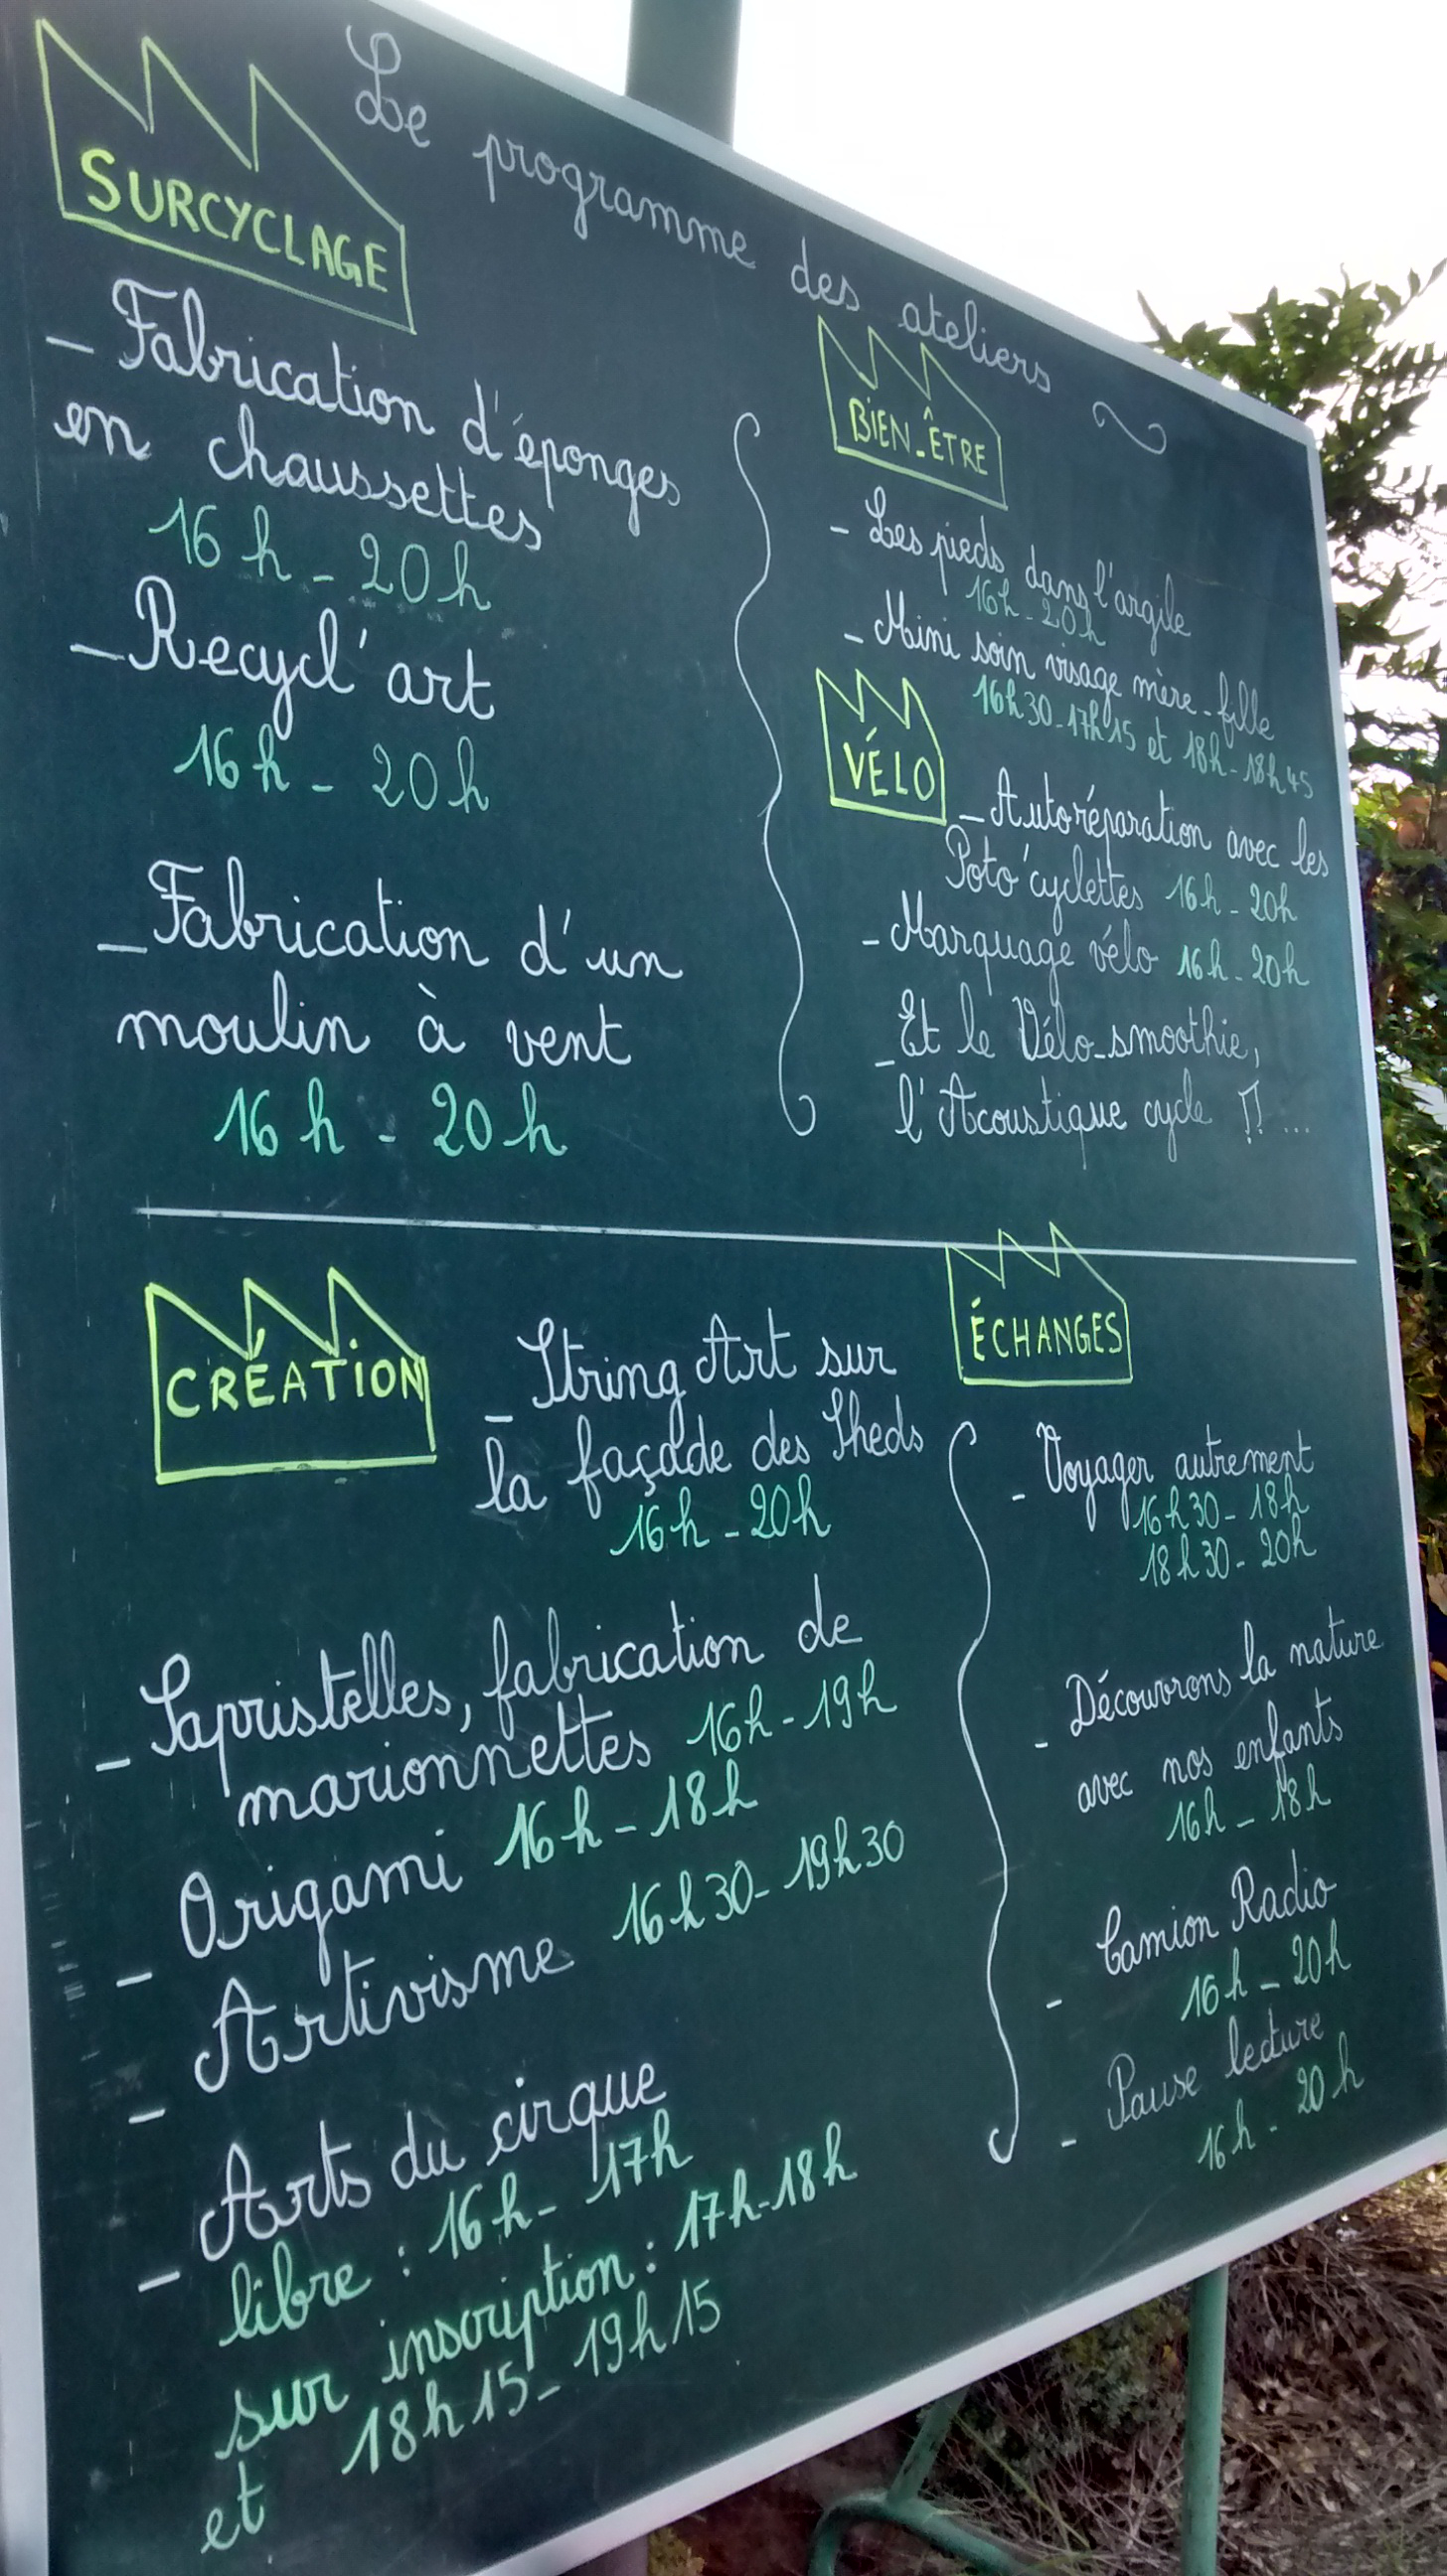 Le programme des ateliers
SURCYCLAGE
- Fabrication d'éponges
en chaussettes
16h - 20h
- Recycl'art
16h - 20h
- Fabrication d'un
moulin à vent
16h - 20h
BIEN-ÊTRE
- Les pieds dans l'argile
16h - 20h
- Mini soin visage mère-fille
16h30 - 17h15 et 18h - 18h45
VÉLO
- Autoréparation avec les
Poto'cyclettes 16h - 20h
- Marquage vélo 16h - 20h
- Et le Vélo-smoothie,
l'Acoustique cycle !! ...
CRÉATION
- String Art sur
la façade des Sheds
16h - 20h
- Sapristelles, fabrication de
marionnettes 16h - 19h
- Origami 16h - 18h
- Artivisme 16h30 - 19h30
- Arts du cirque
libre : 16h - 17h
sur inscription : 17h - 18h
et 18h15 - 19h15
ÉCHANGES
- Voyager autrement
16h30 - 18h
18h30 - 20h
- Découvrons la nature
avec nos enfants
16h - 18h
- Camion Radio
16h - 20h
- Pause lecture
16h - 20h